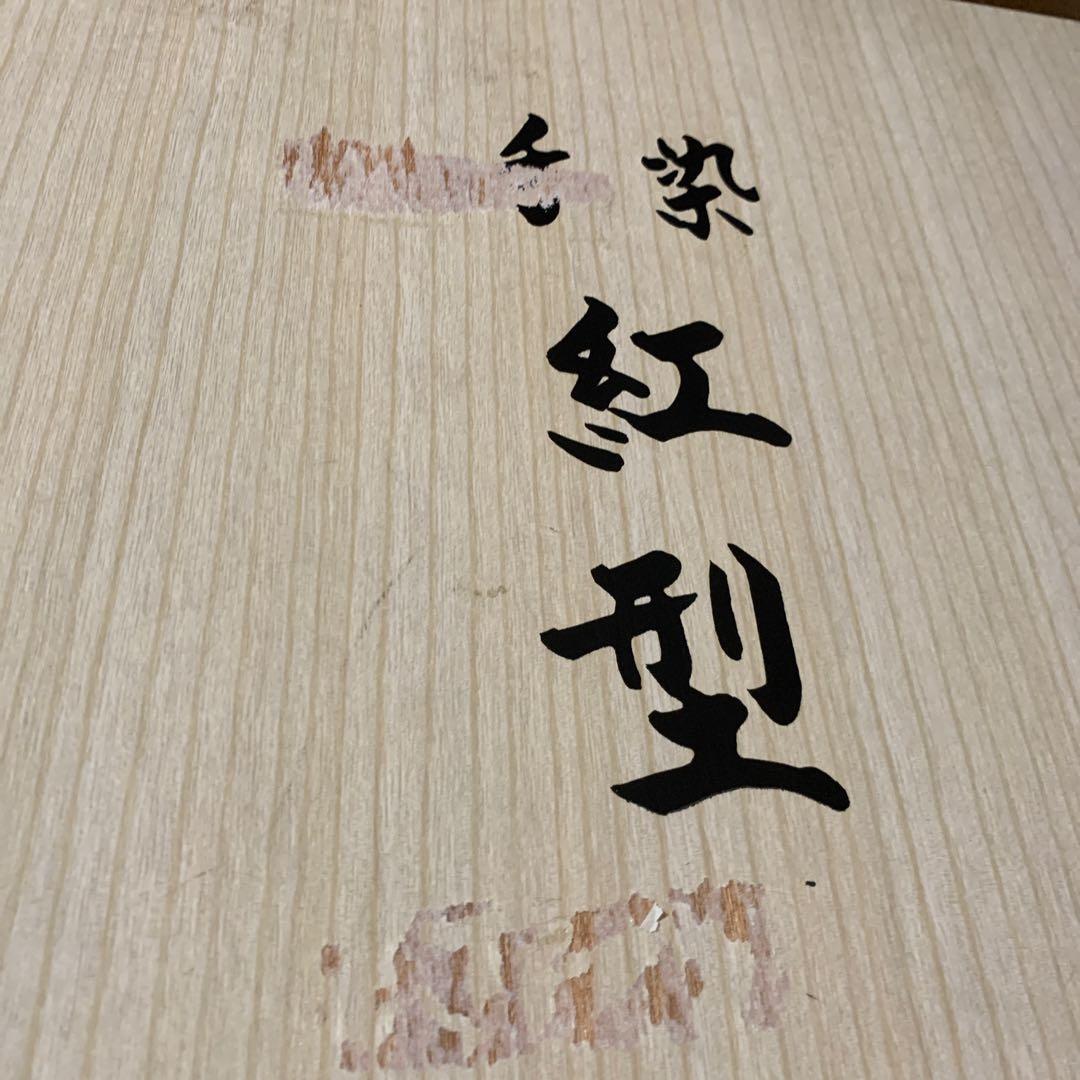 手染
紅型